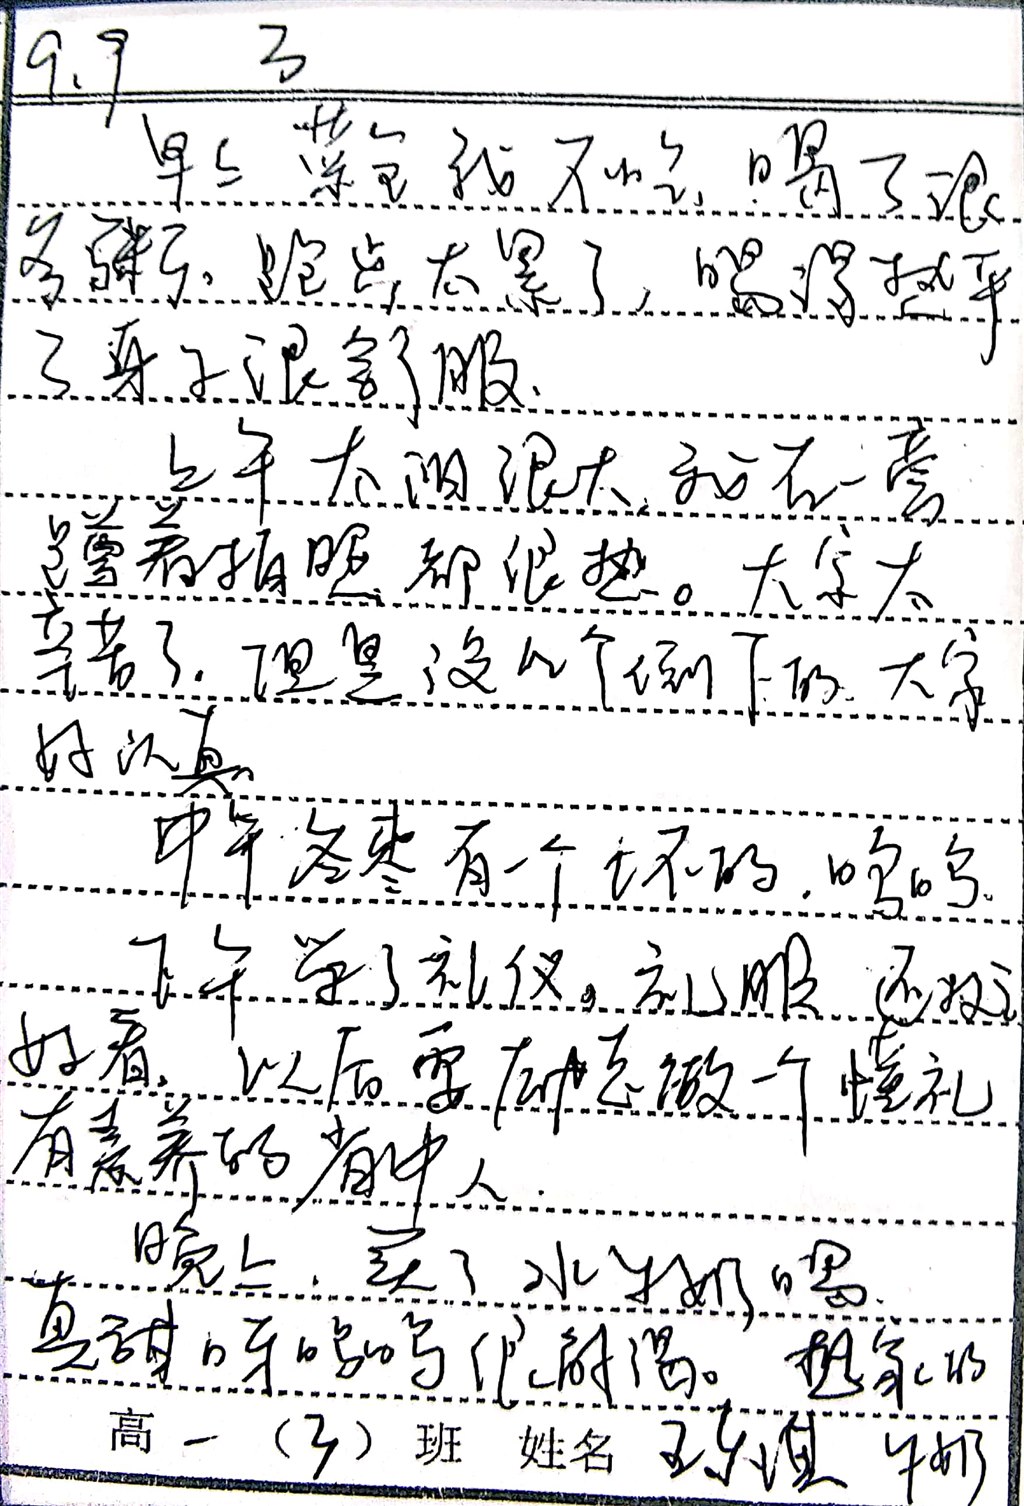 9.9 3
早上 菜包我不吃,喝了很
多稀饭.跑步太累了,喝得热乎
了身子很舒服.
上午太阳很大,我在一旁
蹲着拍照都很热。大家太
辛苦了.但是没几个倒下的.大家
好认真
中午冬枣有一个坏的.呜呜.
下午学了礼仪,礼服还挺
好看.以后要励志做一个懂礼
有素养的省中人.
晚上.买了水牛奶喝.
真甜呀呜呜很解渴。热气的
高一(3)班 姓名 牛奶